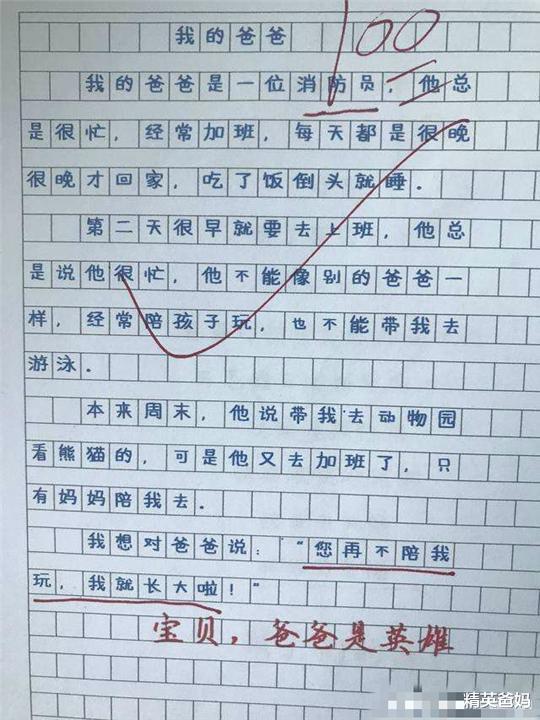 100
我的爸爸
我的爸爸是一位消防员，他总
是很忙，经常加班，每天都是很晚
很晚才回家，吃了饭倒头就睡．
第二天很早就要去上班，他总
是说他很忙，他不能像别的爸爸一
样，经常陪孩子玩，也不能带我去
游泳．
本来周末，他说带我去动物园
看熊猫的，可是他又去加班了，只
有妈妈陪我去．
我想对爸爸说：“您再不陪我
玩，我就长大啦！”
宝贝，爸爸是英雄
精英爸妈